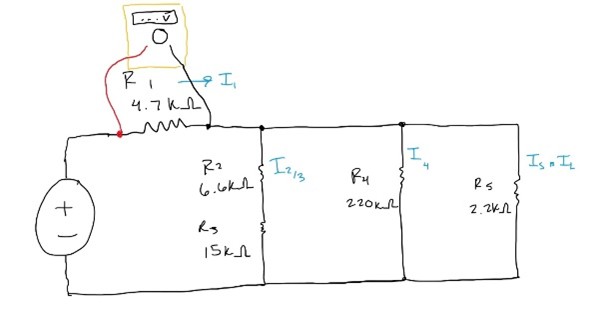 ... V
R1
I1
4.7KΩ
+
−
R2
6.6kΩ
I2/3
R3
15kΩ
R4
220kΩ
I4
R5
2.2kΩ
I5 = IL